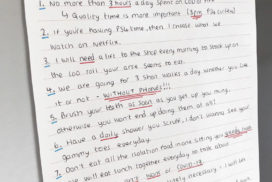 1. No more than 3 hours a day spent on COD or FIFA
↳ Quality time is more important (3pm
2. If you're having PS4 time, then I choose what we
watch on Netflix.
3. I will need a lift to the shop every morning to stock up on
the loo roll your arse seems to eat.
4. We are going for 3 walks a day whether you like
it or not - WITHOUT PHONES!!!
5. Brush your teeth as soon as you get up you ming,
otherwise you won't end up doing them at all!
6. Have a daily shower you scruff, I don't wanna see your
gammy toes everyday.
7. Don't eat all the isolation food in one sitting you greedy
We will eat lunch together everyday